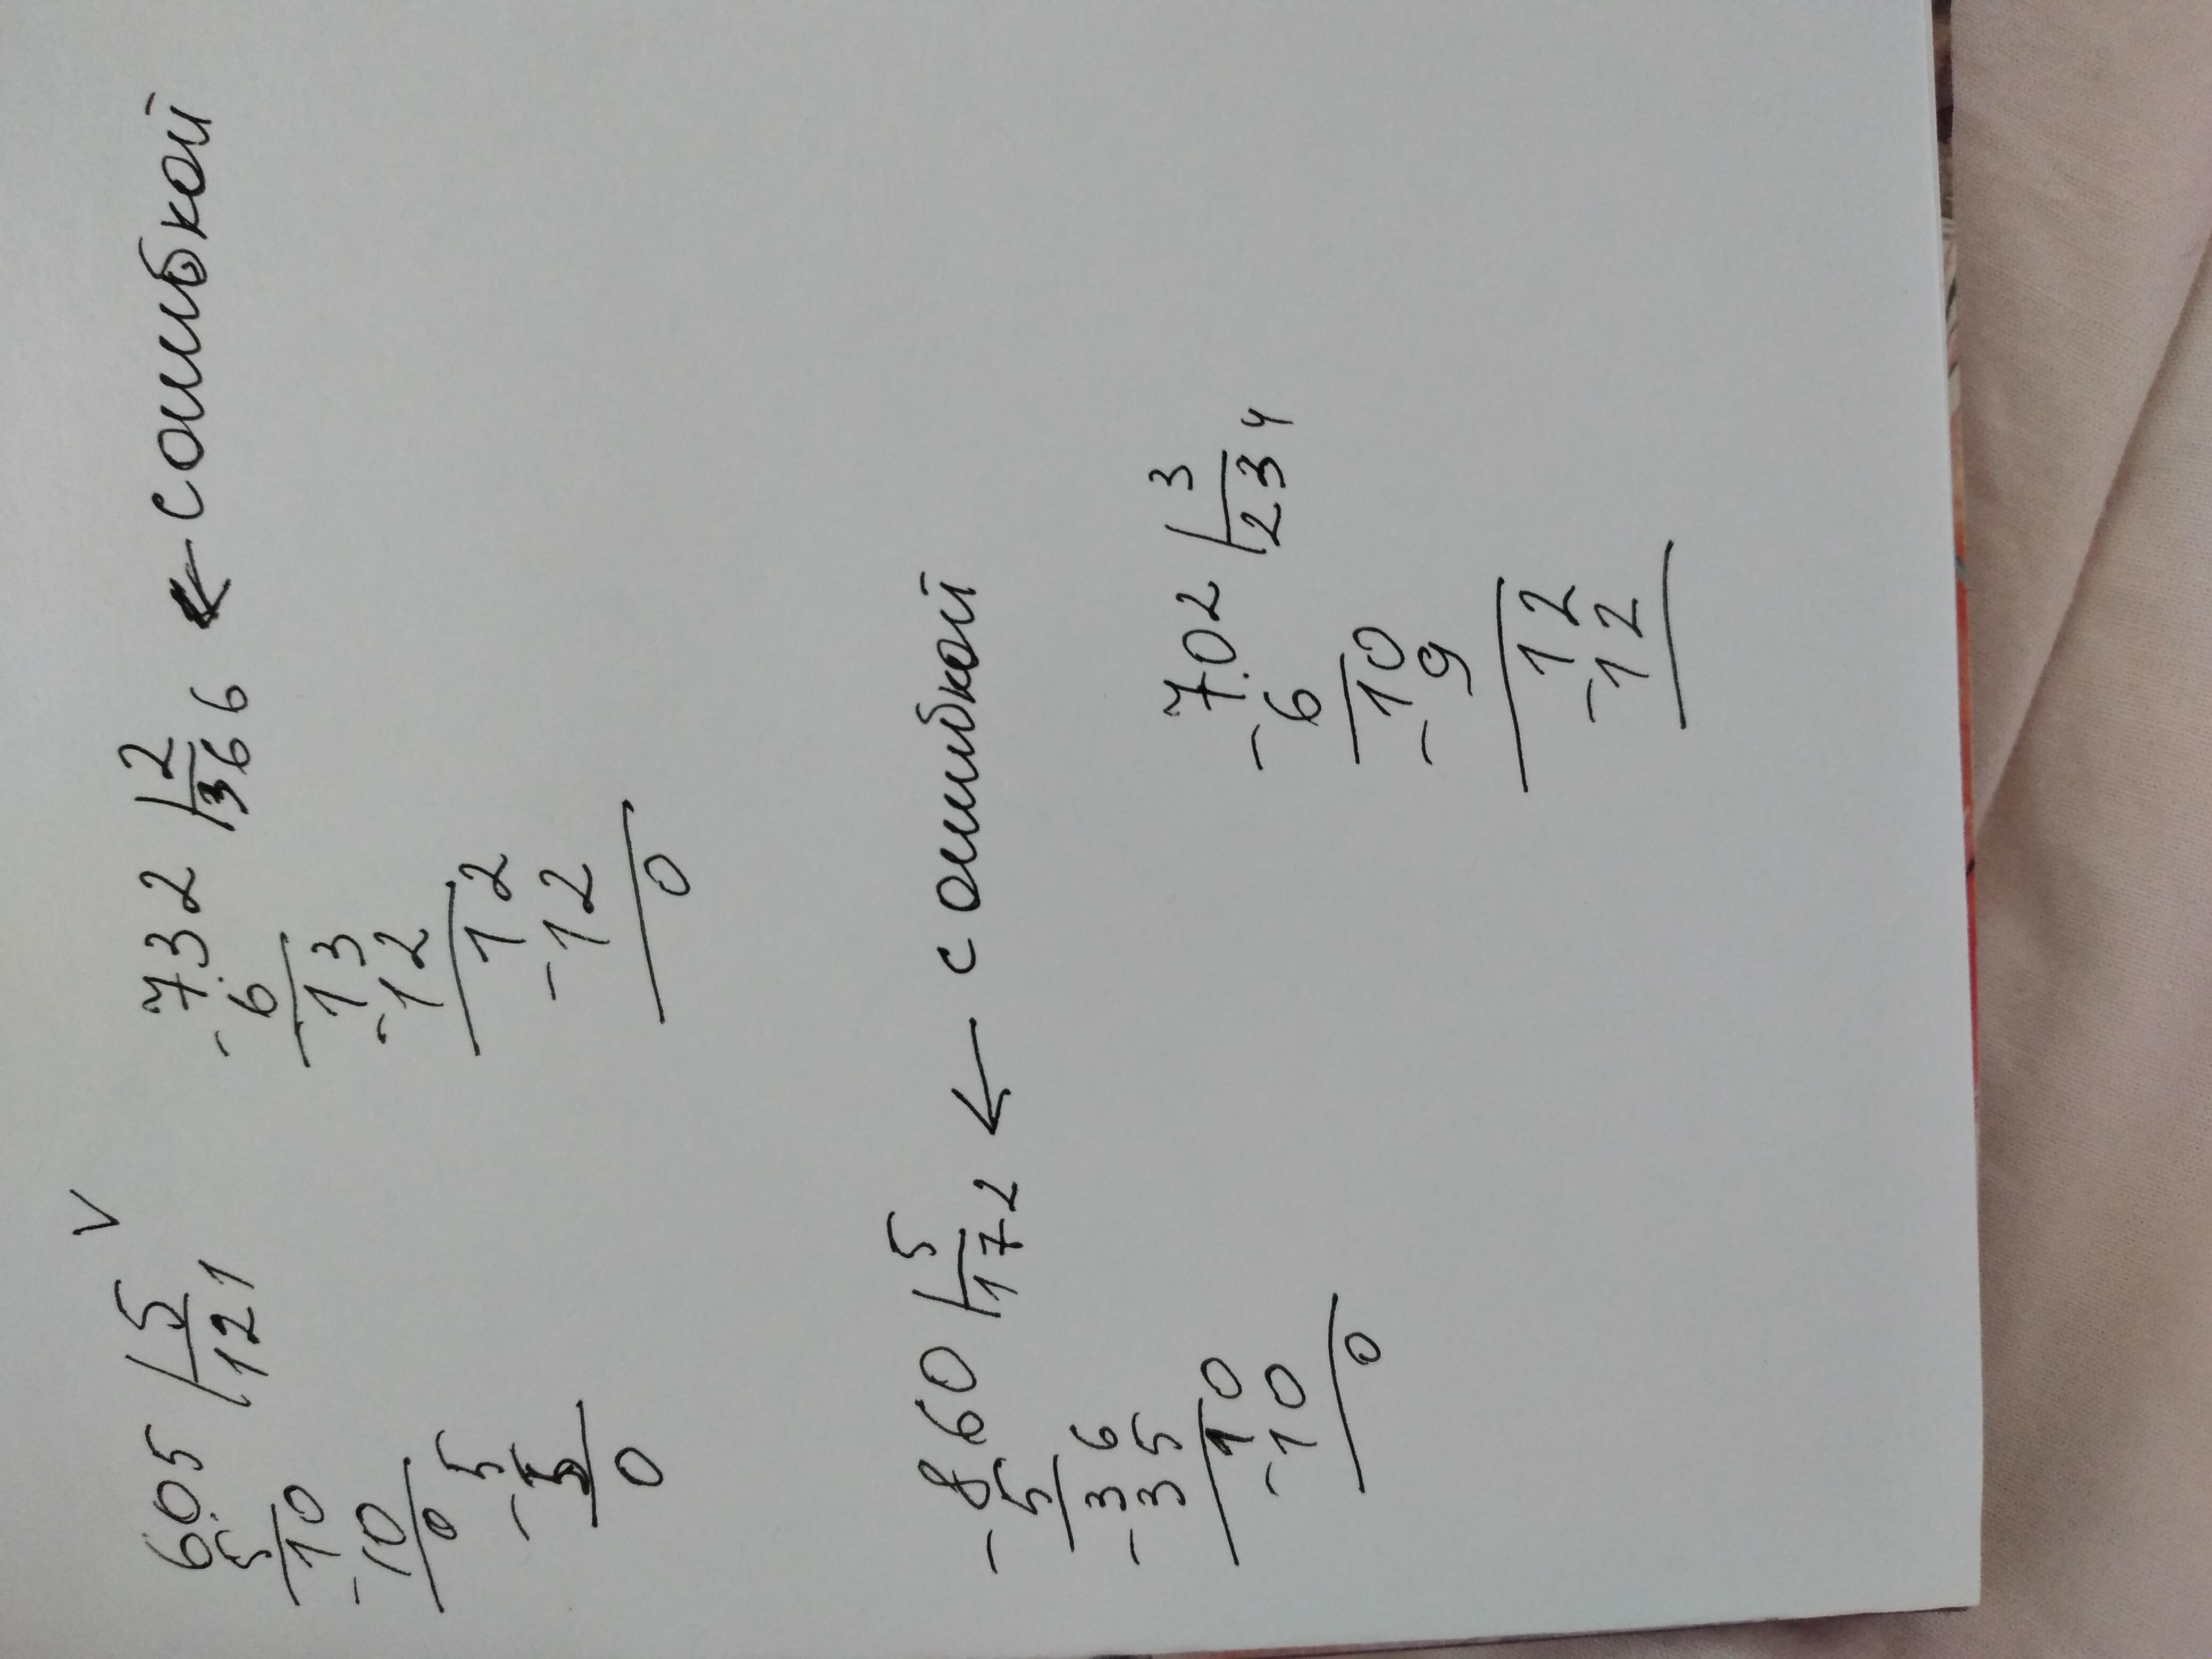 V
605 5
5 121
10
-10
0 5
-5
0
732 2 ← с ошибкой
-6 366
13
-12
12
-12
0
860 5 ← с ошибкой
-5 172
36
-35
10
-10
0
702 3
-6 234
10
-9
12
-12